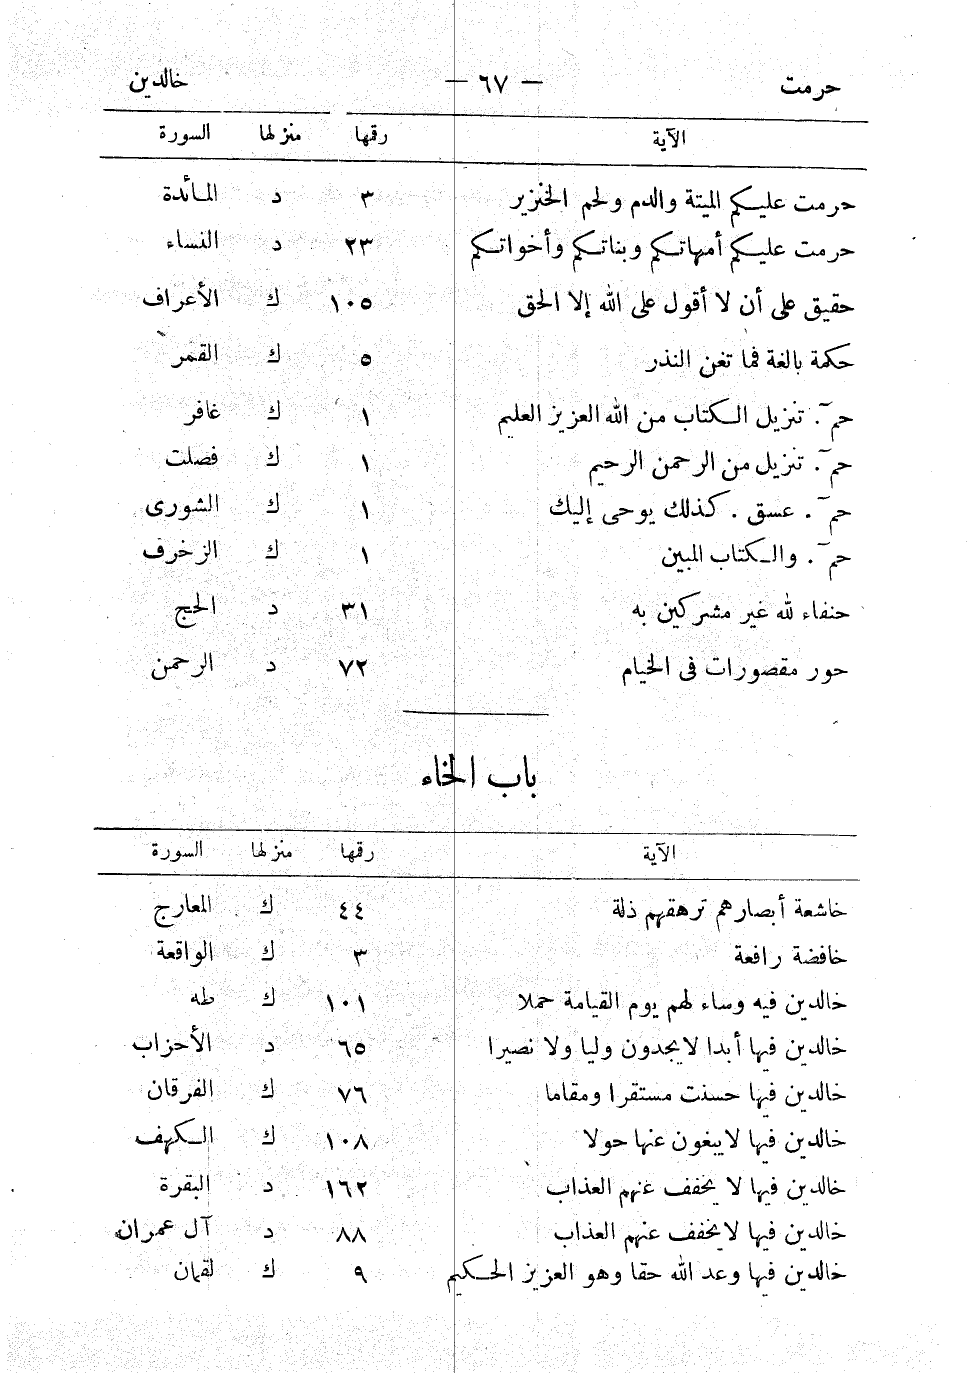 حرمت — ٦٧ — خالدين
الآية رقمها منزلها السورة
حرمت عليكم الميتة والدم ولحم الخنزير ٣ د المائدة
حرمت عليكم أمهاتكم وبناتكم وأخواتكم ٢٣ د النساء
حقيق على أن لا أقول على الله إلا الحق ١٠٥ ك الأعراف
حكمة بالغة فما تغن النذر ٥ ك القمر
حمٓ . تنزيل الكتاب من الله العزيز العليم ١ ك غافر
حمٓ . تنزيل من الرحمن الرحيم ١ ك فصلت
حمٓ . عسق . كذلك يوحى إليك ١ ك الشورى
حمٓ . والكتاب المبين ١ ك الزخرف
حنفاء لله غير مشركين به ٣١ د الحج
حور مقصورات فى الخيام ٧٢ د الرحمن
باب الخاء
الآية رقمها منزلها السورة
خاشعة أبصارهم ترهقهم ذلة ٤٤ ك المعارج
خافضة رافعة ٣ ك الواقعة
خالدين فيه وساء لهم يوم القيامة حملا ١٠١ ك طه
خالدين فيها أبدا لا يجدون وليا ولا نصيرا ٦٥ د الأحزاب
خالدين فيها حسنت مستقرا ومقاما ٧٦ ك الفرقان
خالدين فيها لا يبغون عنها حولا ١٠٨ ك الكهف
خالدين فيها لا يخفف عنهم العذاب ١٦٢ د البقرة
خالدين فيها لا يخفف عنهم العذاب ٨٨ د آل عمران
خالدين فيها وعد الله حقا وهو العزيز الحكيم ٩ ك لقمان